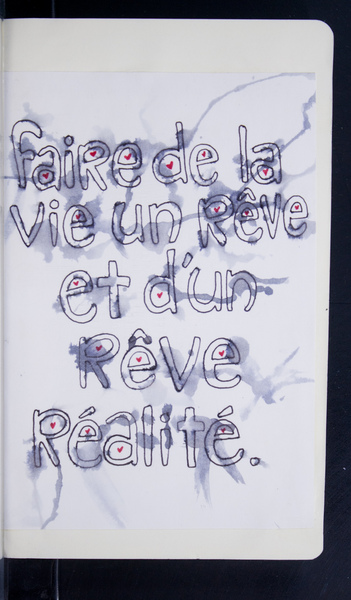 faire de la
vie un Rêve
et d'un
Rêve
Réalité.